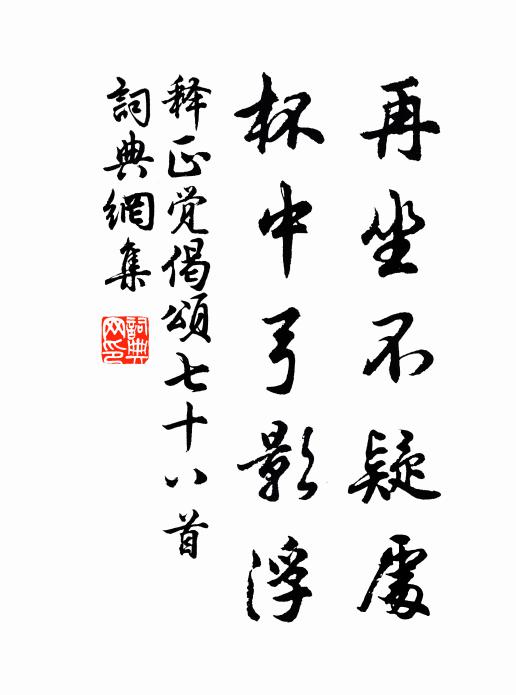 再坐不疑處
杯中弓影浮
释正觉偈頌七十八首
詞典網集
詞典网印